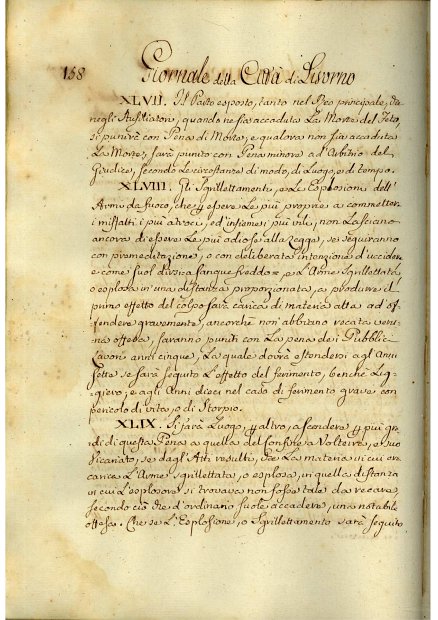 158
Giornale della Città di Livorno
XLVII. Il Parto esposto, tanto nel Reo principale, che
negli Ausiliatori, quando ne sia accaduta La Morte del Feto,
si punirà con Pena di Morte, e qualora non sia accaduta
La Morte, sarà punito con Pena minore ad Arbitrio del
Giudice, secondo Le circostanze di modo, di Luogo, e di tempo.
XLVIII. Gli Sgrillettamenti, e Le Esplosioni dell'
Armi da fuoco, che p essere Le più proprie a commetter
i misfatti i più atroci, ed insieme i più vili, non Lasciano
ancora di essere Le più odiose alla Legge, se seguiranno
con premeditazione, o con deliberata intenzione d'uccidere
e come suol dirsi a sangue freddo, e L'Arme sgrillettata,
o esplosa in una distanza proporzionata, a produrre il
primo effetto del colpo sarà carica di materia atta ad of=
fendere gravemente, ancorchè non abbiano recata veru=
na offesa, saranno puniti con La pena dei Pubblici
Lavori anni cinque, La quale dovrà estendersi agl'Anni
sette se sarà seguito L'effetto del ferimento, benchè Lig=
gieró, e agli Anni dieci nel caso di ferimento grave con
pericolo di vita, o di Storpio.
XLIX. Si farà Luogo, p altro, a scendere p più gra=
di di questa Pena a quella del Confine a Volterra, e suo
Vicariato, se dagli Atti resulti, che La materia in cui era
carica L'Arme sgrillettata, o esplosa, in quella distanza
in cui L'esplosore si trovava non fosse tale da recare,
secondo ciò che d'ordinario suole accadere, una notabile
offesa. Che se L'Esplosione, o Sgrillettamento sarà seguito